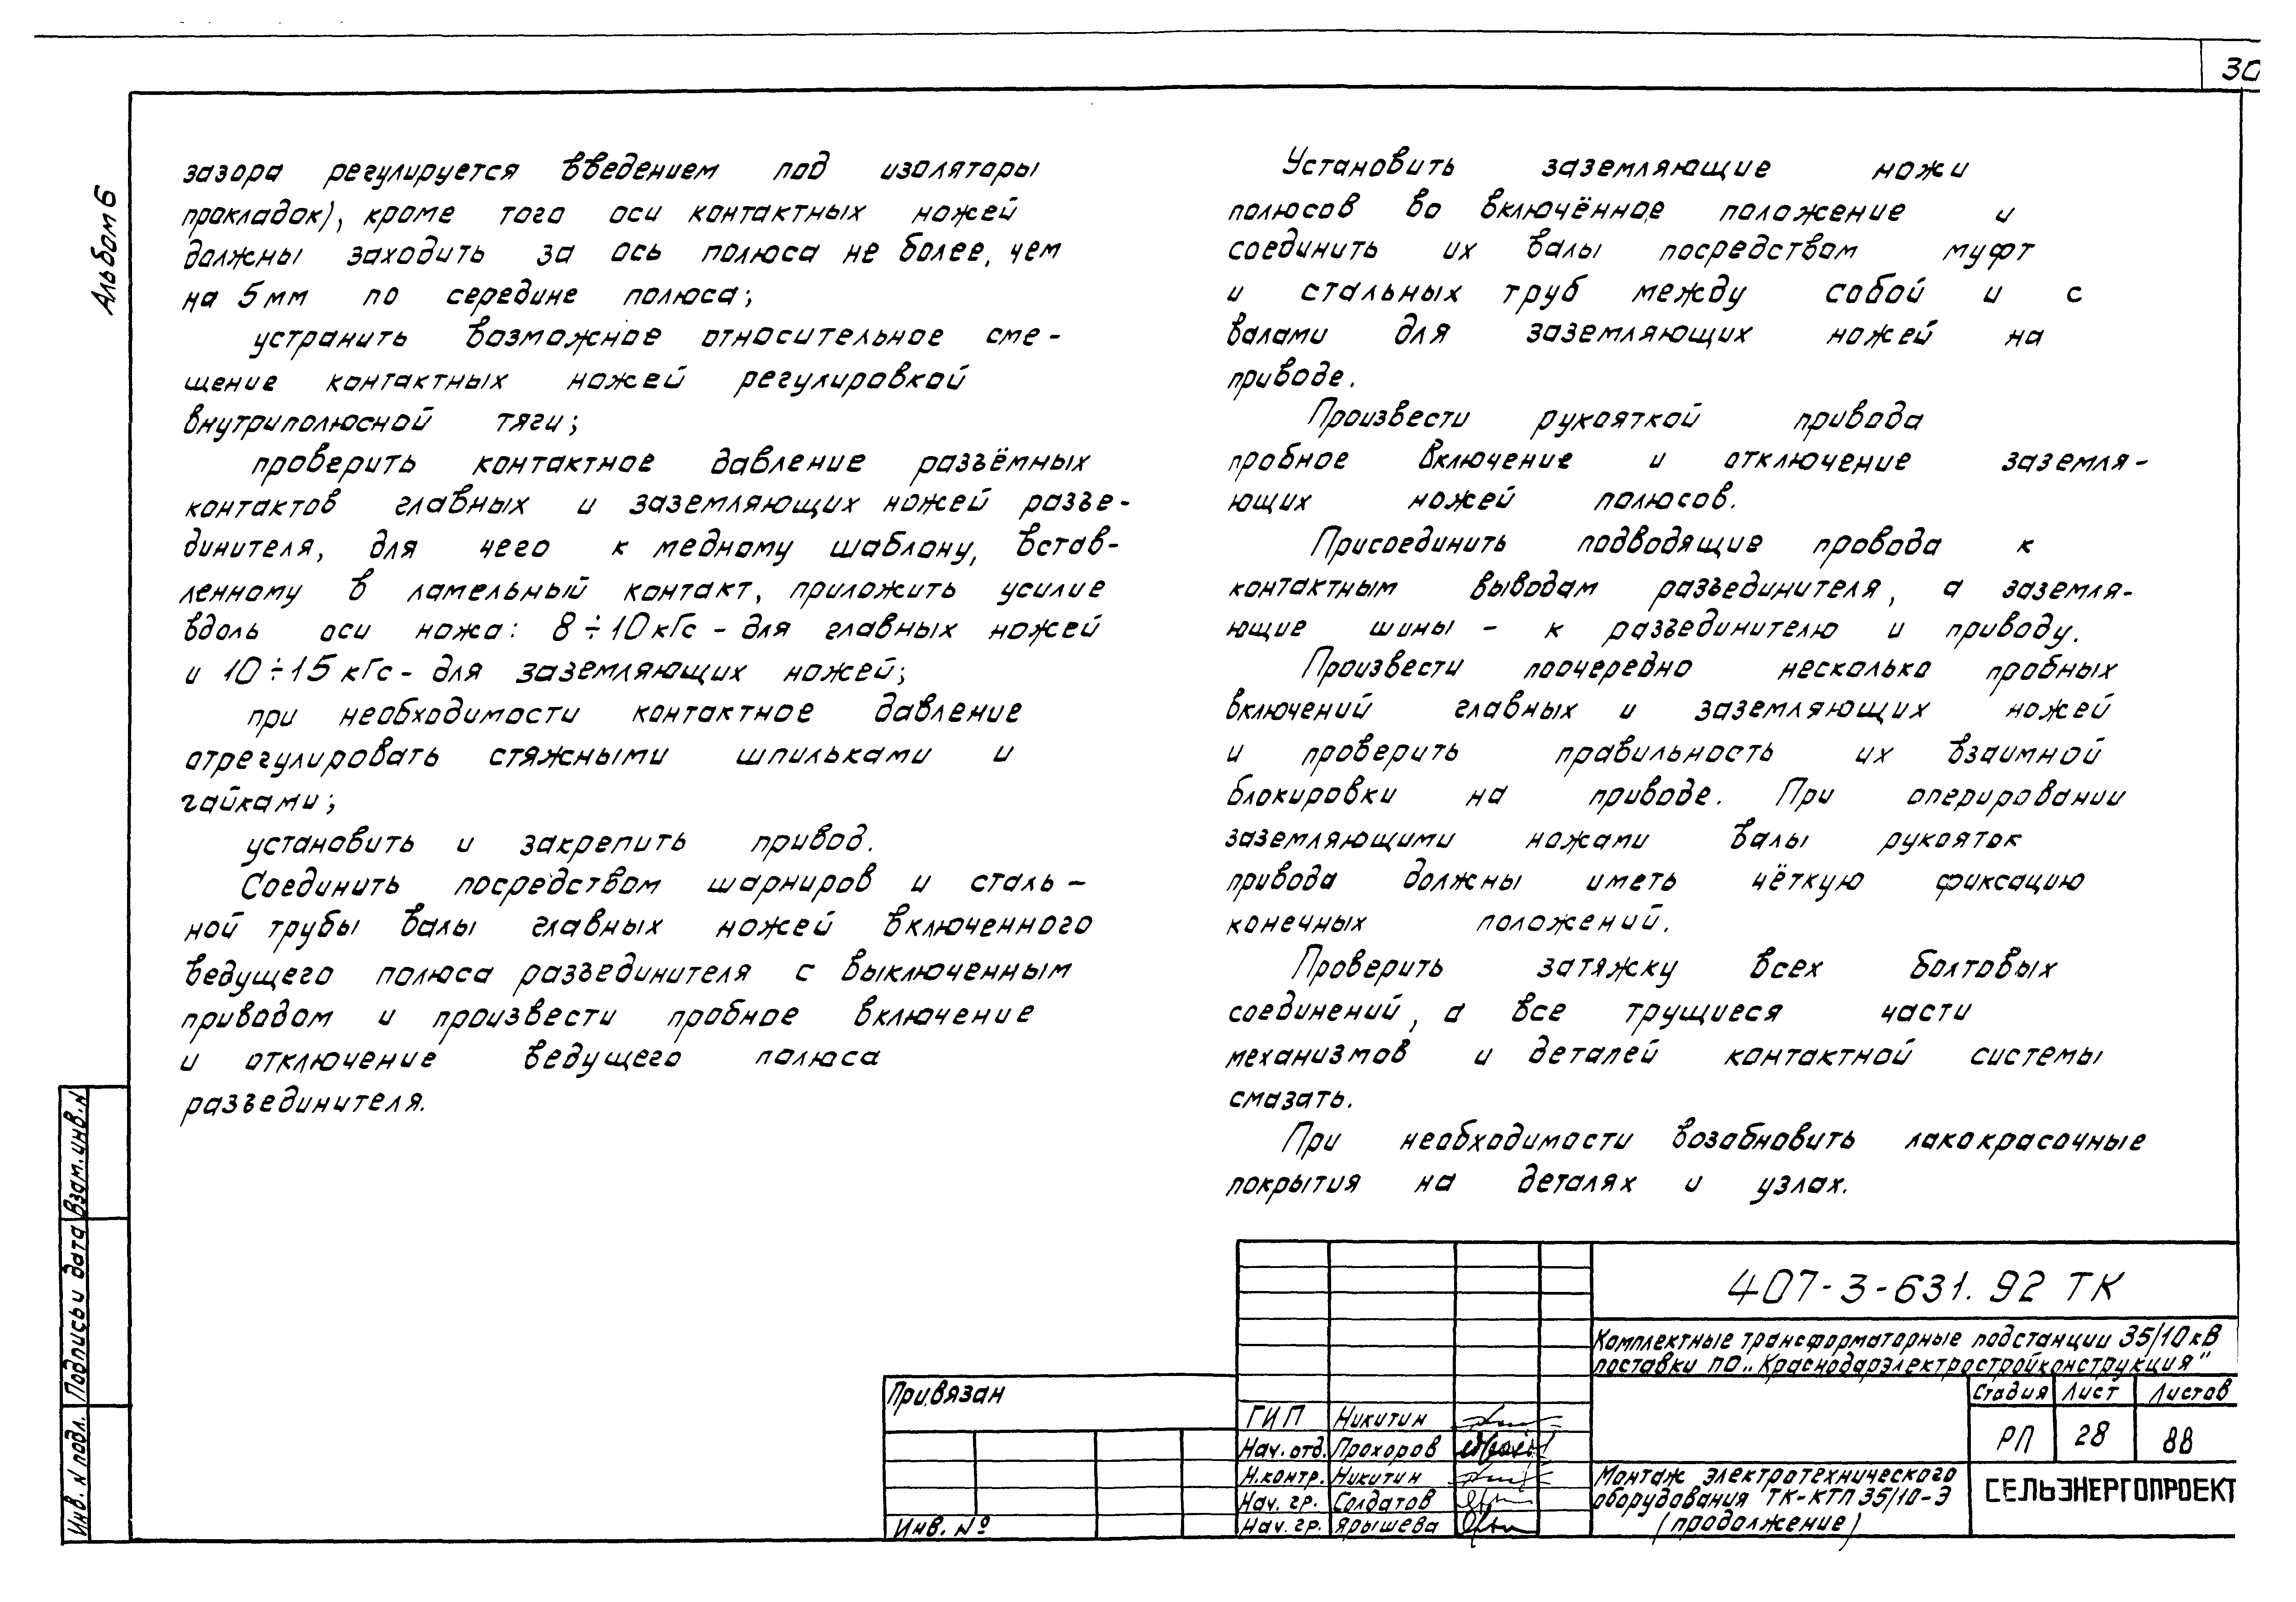 30
Альбом 6
зазора регулируется введением под изоляторы
прокладок), кроме того оси контактных ножей
должны заходить за ось полюса не более, чем
на 5 мм по середине полюса;
устранить возможное относительное сме-
щение контактных ножей регулировкой
внутриполюсной тяги;
проверить контактное давление разъёмных
контактов главных и заземляющих ножей разъе-
динителя, для чего к медному шаблону, встав-
ленному в ламельный контакт, приложить усилие
вдоль оси ножа: 8÷10 кГс - для главных ножей
и 10÷15 кГс - для заземляющих ножей;
при необходимости контактное давление
отрегулировать стяжными шпильками и
гайками;
установить и закрепить привод.
Соединить посредством шарниров и сталь-
ной трубы валы главных ножей включенного
ведущего полюса разъединителя с выключенным
приводом и произвести пробное включение
и отключение ведущего полюса
разъединителя.
Установить заземляющие ножи
полюсов во включённое положение и
соединить их валы посредством муфт
и стальных труб между собой и с
валами для заземляющих ножей на
приводе.
Произвести рукояткой привода
пробное включение и отключение заземля-
ющих ножей полюсов.
Присоединить подводящие провода к
контактным выводам разъединителя, а заземля-
ющие шины - к разъединителю и приводу.
Произвести поочередно несколько пробных
включений главных и заземляющих ножей
и проверить правильность их взаимной
блокировки на приводе. При оперировании
заземляющими ножами валы рукояток
привода должны иметь чёткую фиксацию
конечных положений.
Проверить затяжку всех болтовых
соединений, а все трущиеся части
механизмов и деталей контактной системы
смазать.
При необходимости возобновить лакокрасочные
покрытия на деталях и узлах.
Взам. инв. N
Подпись и дата
Инв. N подл.
Привязан
Инв. №
ГИП Никитин
Нач. отд. Прохоров
Н. контр. Никитин
Нач. гр. Солдатов
Нач. гр. Ярышева
407-3-631.92 ТК
Комплектные трансформаторные подстанции 35/10 кВ
поставки ПО „Краснодарэлектростройконструкция"
Стадия Лист Листов
РП 28 88
Монтаж электротехнического
оборудования ТК-КТП 35/10-Э
(продолжение)
СЕЛЬЭНЕРГОПРОЕКТ